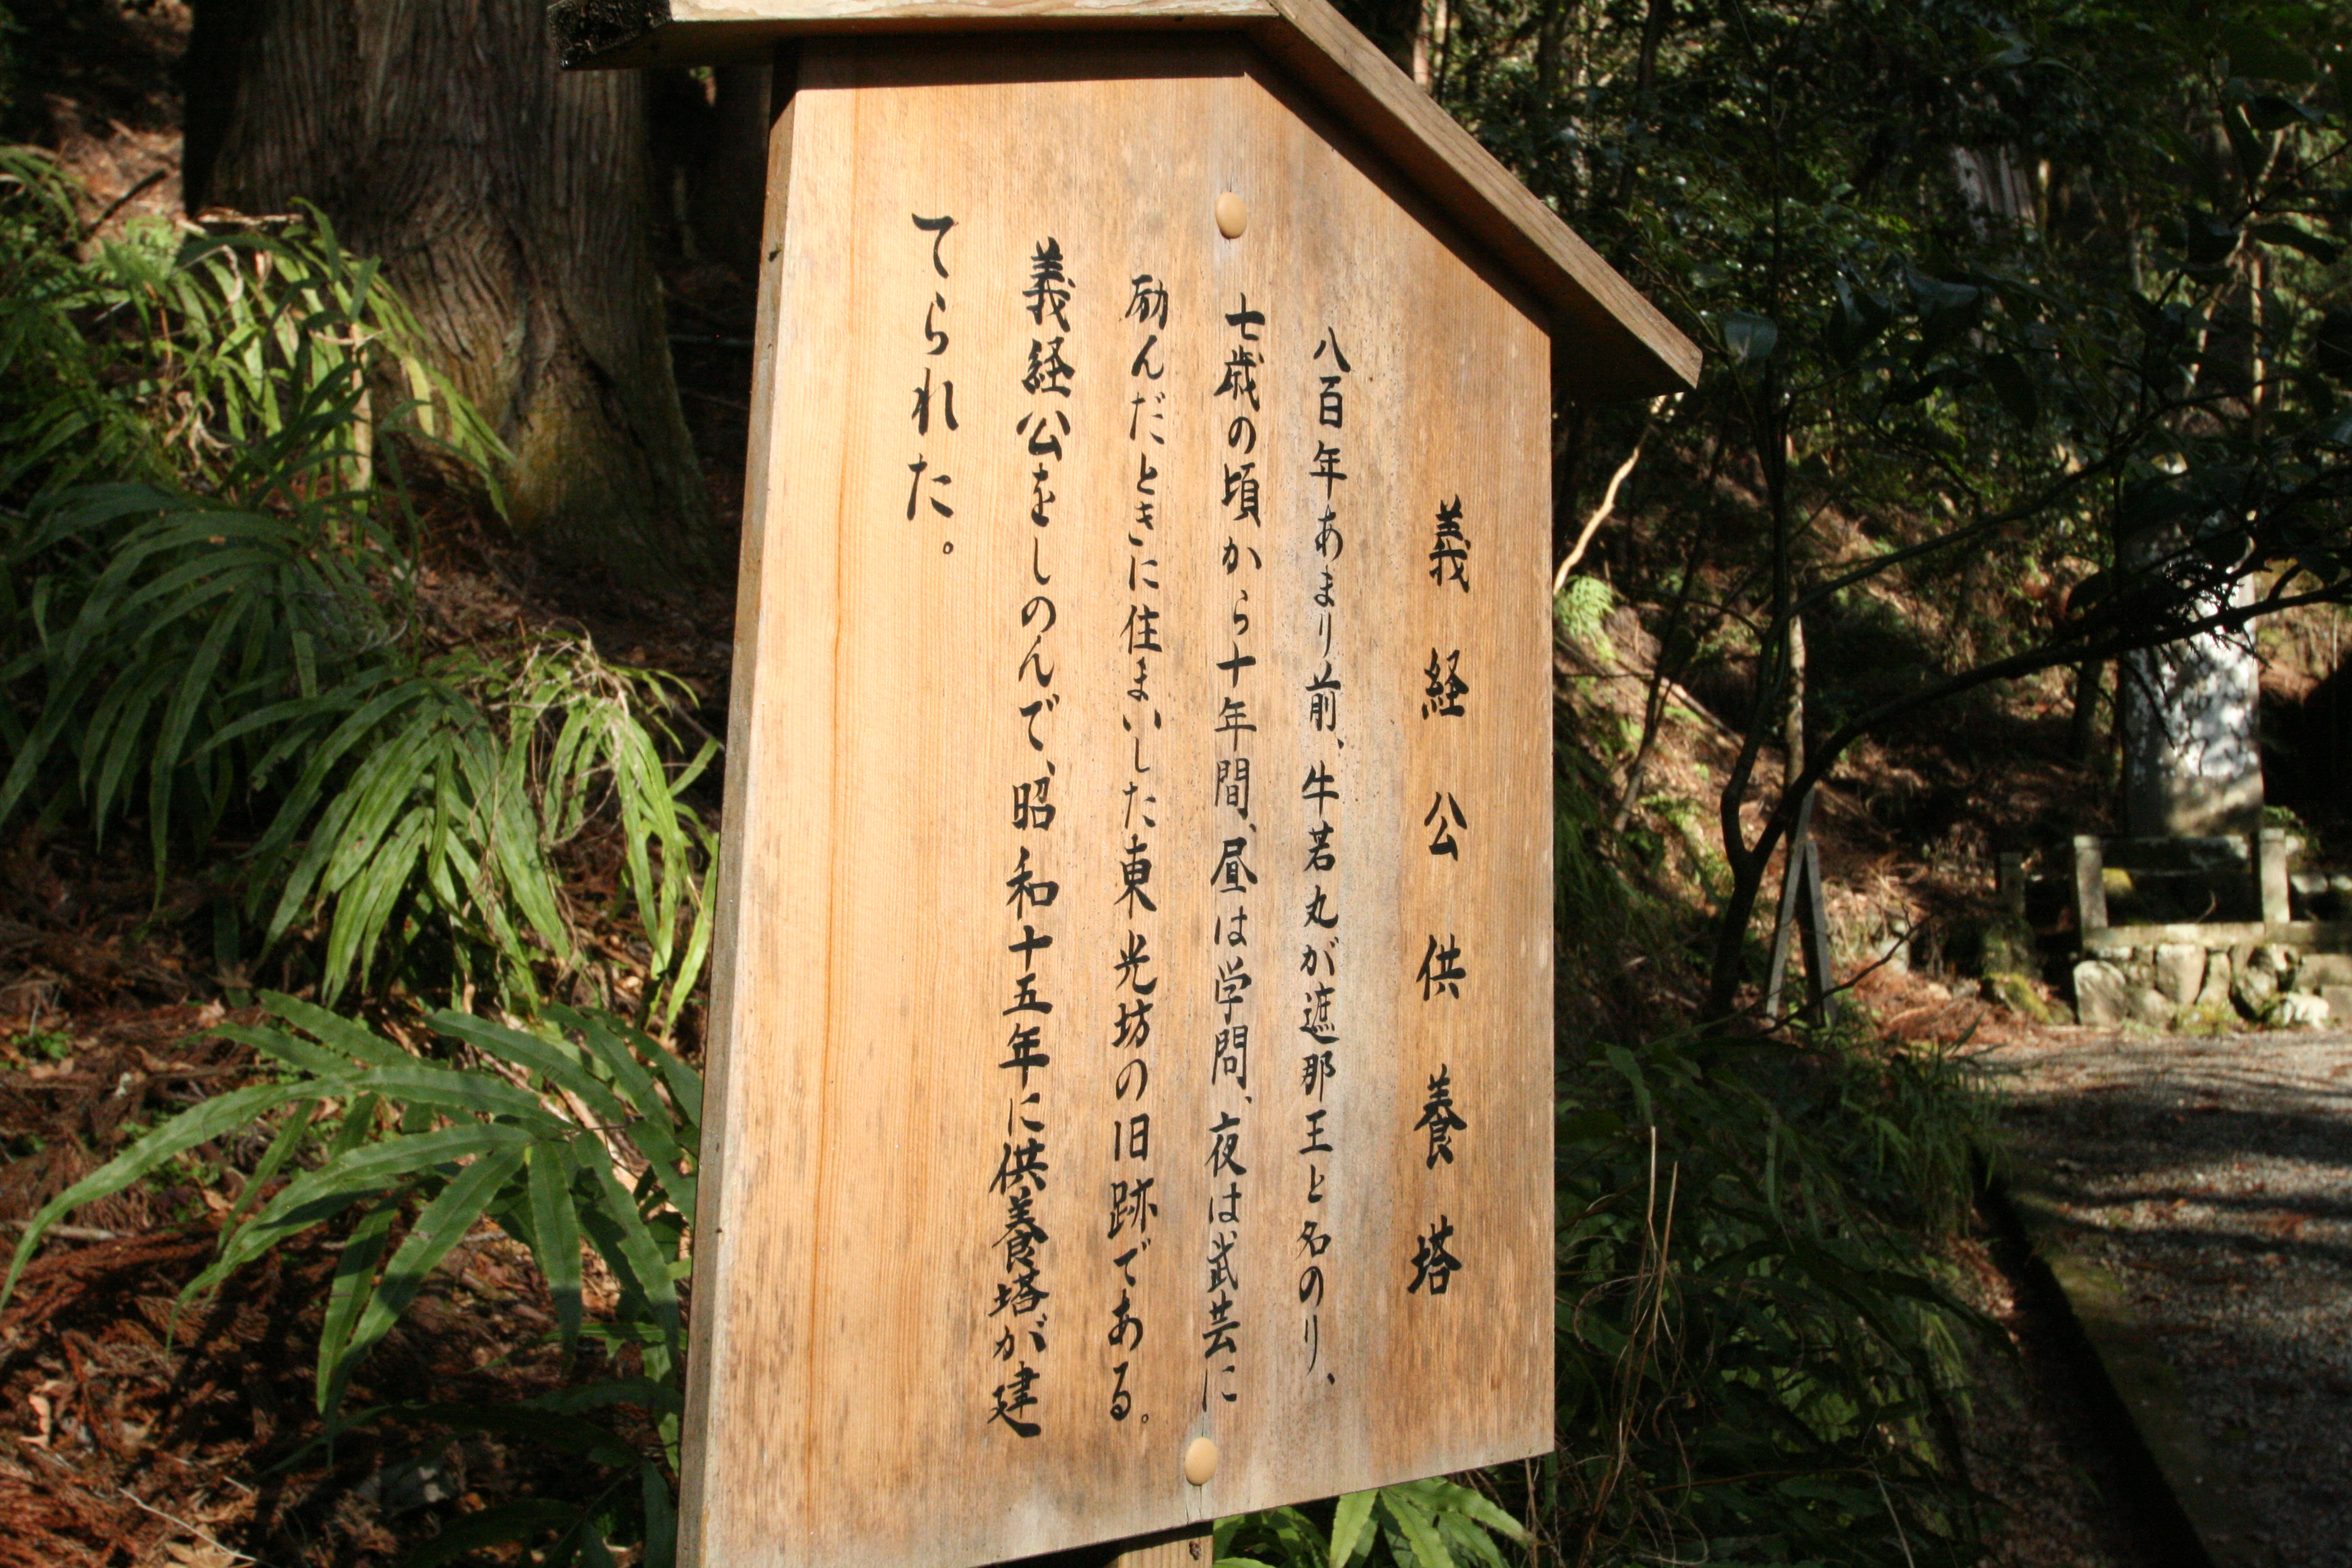 義経公供養塔
八百年あまり前、牛若丸が遮那王と名のり、
七歳の頃から十年間、昼は学問、夜は武芸に
励んだときに住まいした東光坊の旧跡である。
義経公をしのんで、昭和十五年に供養塔が建
てられた。